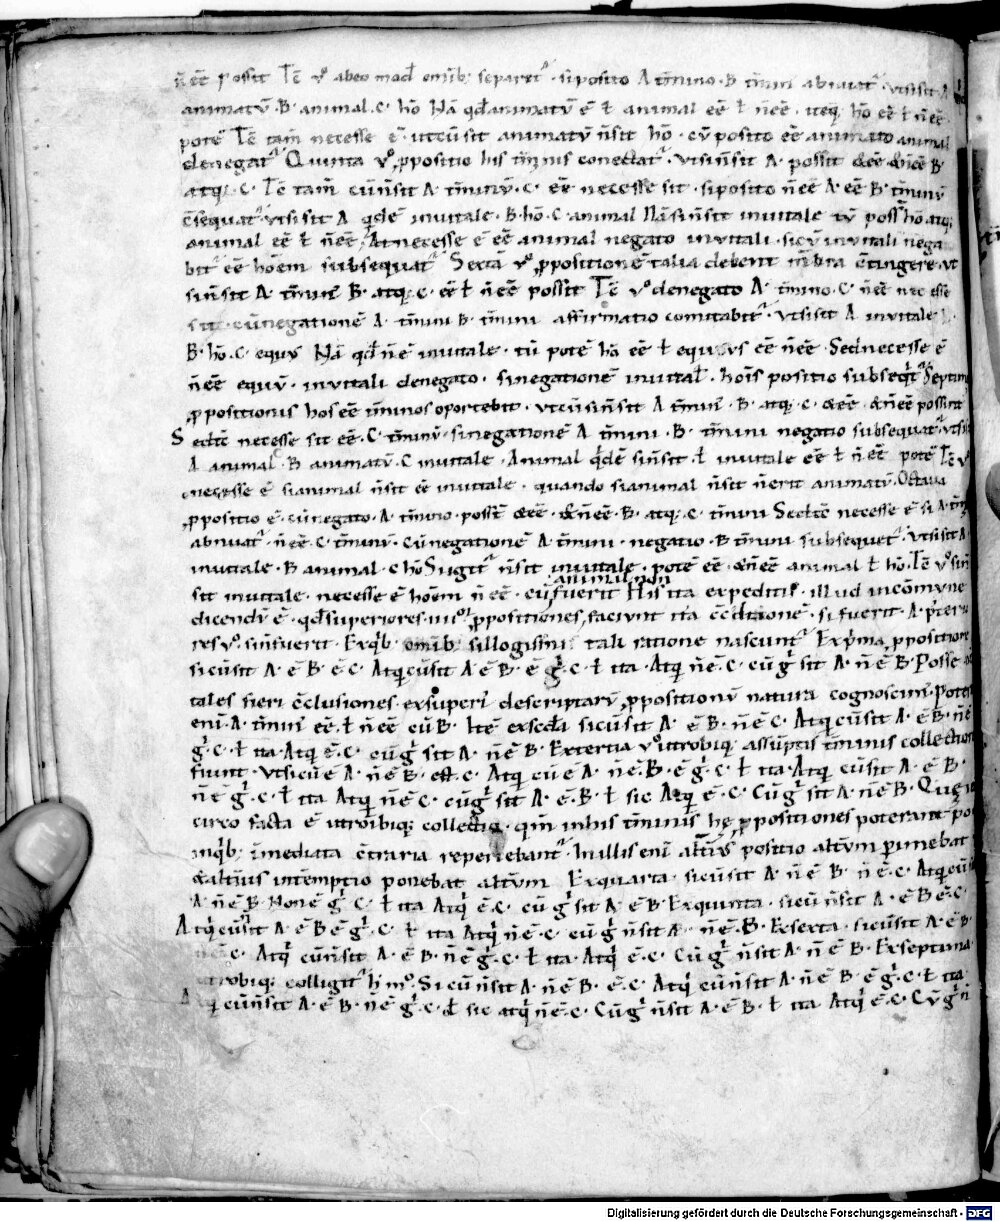 n̄ eē possit Tē v° abeo mod̄ omib; separet᷑ · siposito A t̄mino · B t̄mini abnuat᷑ · vtsisit A
animatū · B · animal · C · hō Nā qd̄ animatū ē ł animal eē ł n̄ eē · itēq; hō eē ł n̄ eē ·
potē Tē tam̄ necesse ē · ut cū sit animatū n̄sit hō · cū posito eē animato animal
denegat᷑ Quinta v° p̱positio his t̄minis conectat᷑ · vtsin̄sit A · possit & eē & n̄ eē B ·
atq; · C · Tē tam̄ cū n̄sit A · t̄minū · C · eē necesse sit · siposito n̄ eē A · eē B · t̄minū
c̄sequat᷑ vtsi sit A qdē inuitale · B · hō · C · animal Nā sin̄sit inuitale tū possit hō atq;
animal eē ł n̄ eē At necesse ē eē animal negato inuitali · si cū inuitali nega
bit᷑ eē hoēm subsequat᷑ Sexta v° p̱positionē talia debent mēbra c̄tingere · vt
sin̄sit A · t̄min̄ B · atq; · C · eē ł n̄ eē possit Tē v° denegato A · t̄mino · C · n̄ eē necesse
sit · cū negationē A · t̄mini B · t̄mini affirmatio comitabit᷑ · vtsisit A inuitale
B · hō · C · equus Nā qd̄ n̄ ē inuitale · tū potē hō eē ł equus eē n̄ eē · Sed necesse ē
n̄ eē equū · inuitali denegato · si negationē inuital̄ · hoīs positio subseqt᷑ Septima
p̱positionis hos eē t̄minos oportebit · vt cū sin̄sit A t̄min̄ · B · atq; · C · & eē · & n̄ eē possint
S ed tē necesse sit eē · C · t̄minū · si negationē A t̄mini · B · t̄mini negatio subsequat᷑ vtsi sit
A animal · B animatū · C inuitale · Animal qdē sin̄sit · ł inuitale eē ł n̄ eē potē Tē v°
necesse ē si animal n̄sit eē inuitale · quando si animal n̄sit n̄ erit animatū · Octaua
p̱positio ē · cū negato · A · t̄mino · possit & eē · & n̄ eē · B · atq; · C · t̄mini Sed tē necesse ē si A · t̄min
abnuat᷑ · n̄ eē · C · t̄minū · cū negationē A · t̄mini · negatio · B · t̄mini subsequet᷑ · vtsisit A ·
inuitale · B animal · C hō Si igit᷑ n̄sit inuitale · potē eē · & n̄ eē animal ł hō · Tē v° si n̄
sit inuitale · necesse ē hoēm n̄ eē · cū fuerit animal non His ita expeditis · illud incōmune
dicendū ē · qd̄ superiores · iiii°ʳ p̱positiones faciunt ita c̄ditionē · si fuerit · A · p̄terio
res v° · si n̄ fuerit · Ex qb; omib; sillogismi tali ratione nascunt᷑ Ex p̄ma p̱positione
si cū sit · A · ē B · ē C · Atq; cū sit A ē B · ē g̊ · C · ł ita · Atq; n̄ ē · C · cū g̊ sit A · n̄ ē B · Posse
tales fieri c̄clusiones · ex superi descriptarū p̱positionū natura cognoscim̄ · Potest
eni · A · t̄min̄ eē · ł n̄ eē cū B · Itē ex scd̄a si cū sit A · ē B · n̄ ē C · Atq; cū sit A · ē B · n̄ ē
g̊ · C · ł ita · Atq; ē · C · cū g̊ sit A · n̄ ē B · Ex tertia v° utrobiq; assūptis t̄minis collection
fiunt · vtsi cū ē A · n̄ ē B · est · C · Atq; cū ē A · n̄ ē · B · ē g̊ · C · ł ita · Atq; cū sit · A · ē B ·
n̄ ē g̊ · C · ł ita Atq; n̄ ē C · cū g̊ sit A · ē · B · ł sic Atq; ē · C · Cū g̊ sit A · n̄ ē B · Que
circo facta ē utrisbiq; collectio · qm̄ in his t̄minis he p̱positiones poterant p̱
in qb; īmediata c̄traria reperiebant᷑ · In illis eni alt̄ius positio alt̄um p̱imebat
& alt̄ius intēmptio ponebat alt̄um Ex quarta · si cū sit A · n̄ ē B · n̄ ē · C · Atq; cū sit
A · n̄ ē B Non ē g̊ C · ł ita Atq; ē · C · cū g̊ sit A · ē B Ex quinta · si cū n̄sit A · ē B ē · C ·
A tq; cū n̄sit A · ē B ē g̊ · C · ł ita Atq; n̄ ē · C · cū g̊ n̄sit A · n̄ ē · B · Ex sexta · si cū n̄sit A · ē B
n̄ ē C · Atq; cū n̄sit A · ē B · n̄ ē g̊ · C · ł ita · Atq; ē · C · Cū g̊ n̄sit A · n̄ ē B · Ex septima
utrobiq; colligit᷑ h̄ m° · Si cū n̄sit A · n̄ ē B · ē · C · Atq; cū n̄sit A · n̄ ē B · ē g̊ · C · ł ita
A q; cū n̄sit A · ē B · n̄ ē g̊ · C · ł sic atq; n̄ ē · C · Cū g̊ n̄sit A · ē B · ł ita Atq; ē C · Cū g̊ n̄
Digitalisierung gefördert durch die Deutsche Forschungsgemeinschaft - DFG